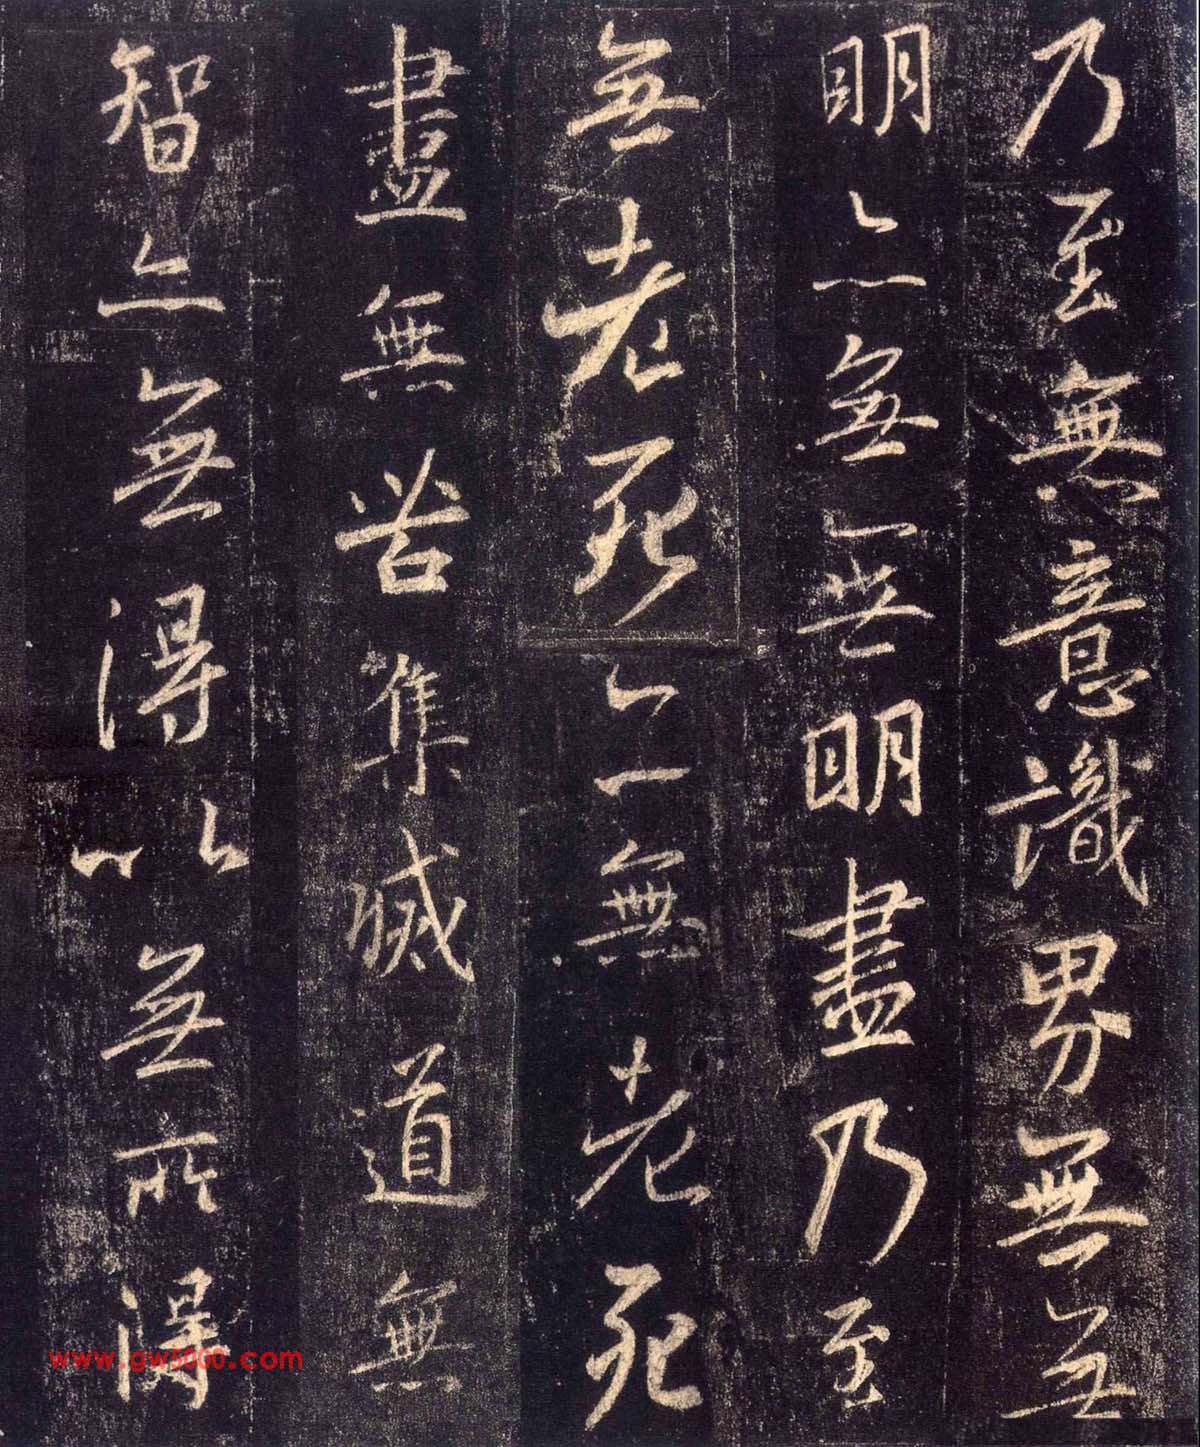 乃至無意識界無無
明亦無無明盡乃至
無老死亦無老死
盡無苦集滅道無
智亦無得以無所得
www.gw5000.com